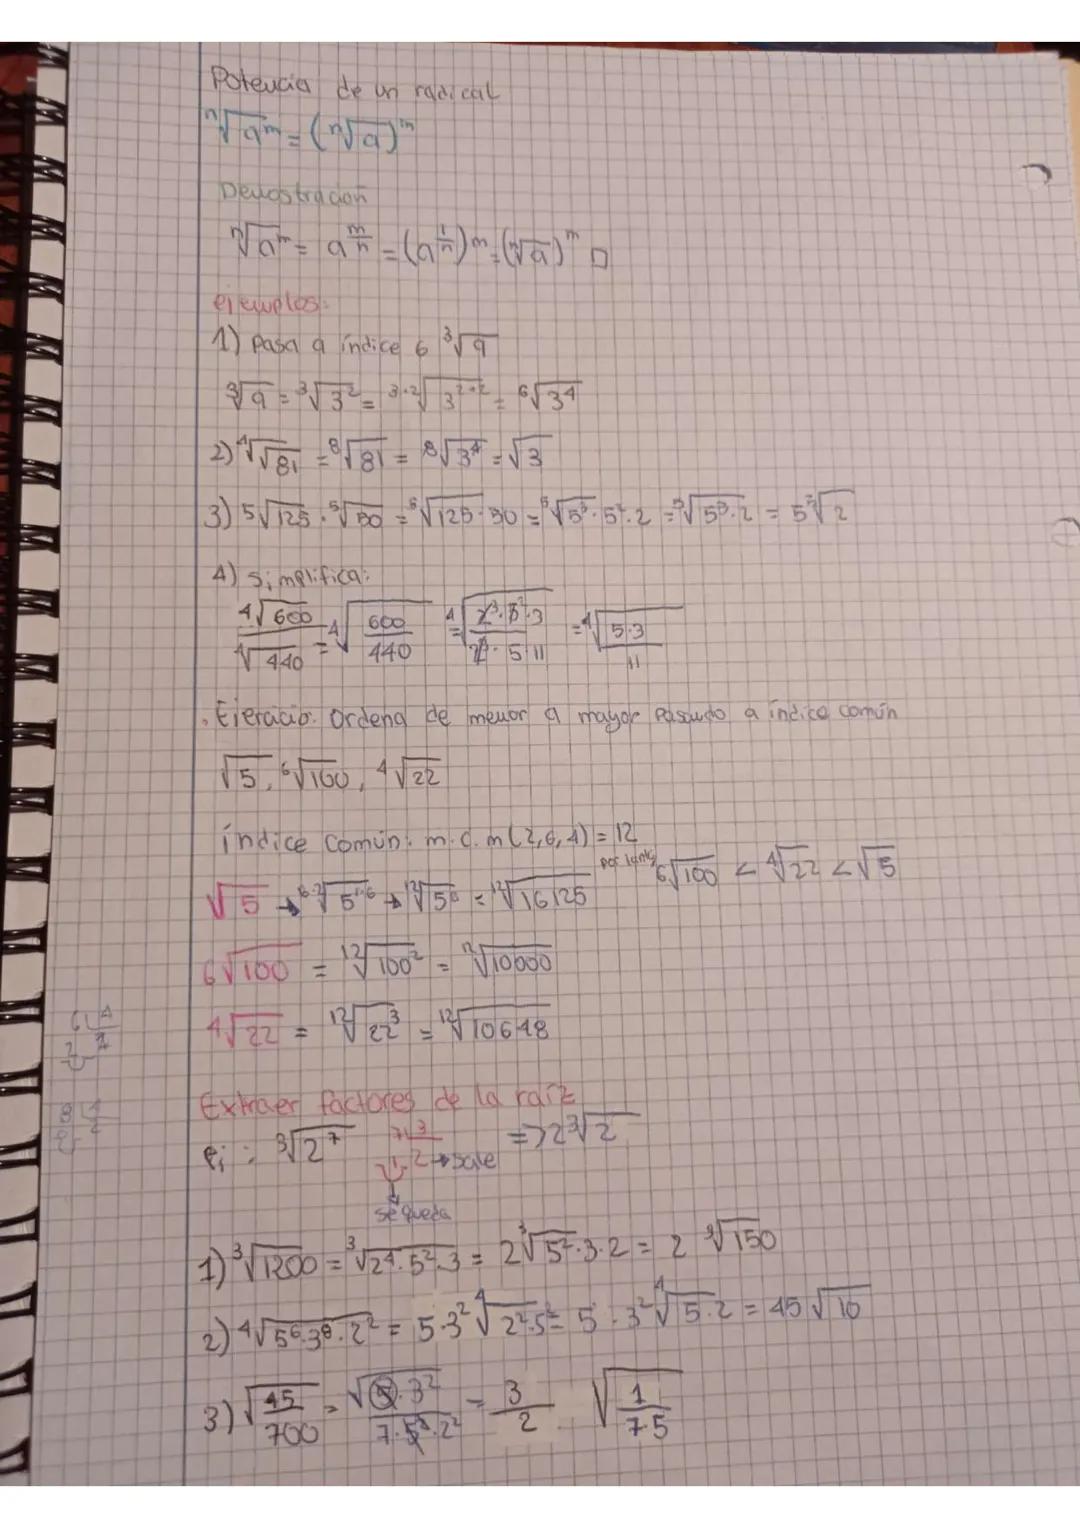 Potencia de un radical
ⁿ√aᵐ = (ⁿ√a)ᵐ
Demostración
ⁿ√aᵐ = a^(m/n) = (a^(1/n))ᵐ = (ⁿ√a)ᵐ □
ejemplos:
1) Pasa a índice 6 ³√9
³√9 = ³√3² = ³·²√3²·² = ⁶√3⁴
2) ⁴√√81 = ⁸√81 = ⁸√3⁴ = √3
3) ⁵√125 · ⁵√50 = ⁵√125·50 = ⁵√5³·5²·2 = ⁵√5⁵·2 = 5⁵√2
4) Simplifica:
⁴√600 / ⁴√440 = ⁴√(600/440) = ⁴√(2³·5²·3 / 2³·5·11) = ⁴√(5·3 / 11)
. Ejercicio. Ordena de menor a mayor pasando a índice común
√5, ⁶√100, ⁴√22
índice común: m.c.m (2,6,4) = 12
√5 → ⁶·²√5¹·⁶ → ¹²√5⁶ = ¹²√16125
por tanto ⁶√100 < ⁴√22 < √5
⁶√100 = ¹²√100² = ¹²√10000
⁴√22 = ¹²√22³ = ¹²√10648
6 4
2 1
8 4
0 2
Extraer factores de la raíz
ej: ³√2⁷
7 3
1 2 → sale
se queda
=> 2³√2
1) ³√1200 = ³√2⁴·5²·3 = 2³√5²·3·2 = 2 ³√150
2) ⁴√5⁶·3⁸·2² = 5·3² ⁴√2²·5² = 5·3² ⁴√5·2 = 45√10
3) √(45/700) = √5·3² / 7·5²·2² = 3/2 √(1/7·5)